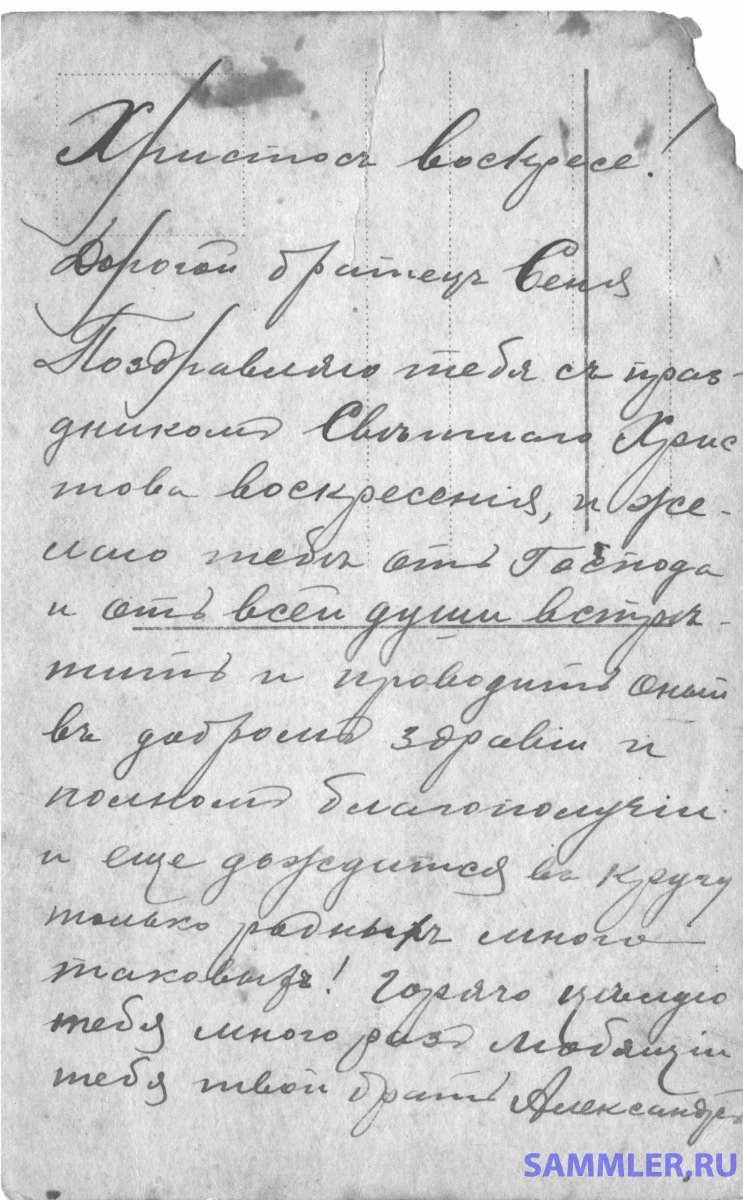 Христосъ воскресе!
Дорогой братецъ Сеня
Поздравляю тебя съ праз-
дникомъ Свѣтлаго Хрис
това воскресенія, и же-
лаю тебѣ отъ Господа
и отъ всей души встрѣ-
тить и проводить оный
въ добромъ здравіи и
полномъ благополучіи
и еще дождится въ кругу
только родныхъ много
таковыхъ! Горячо цѣлую
тебя много разъ любящій
тебя твой братъ Александръ
SAMMLER.RU